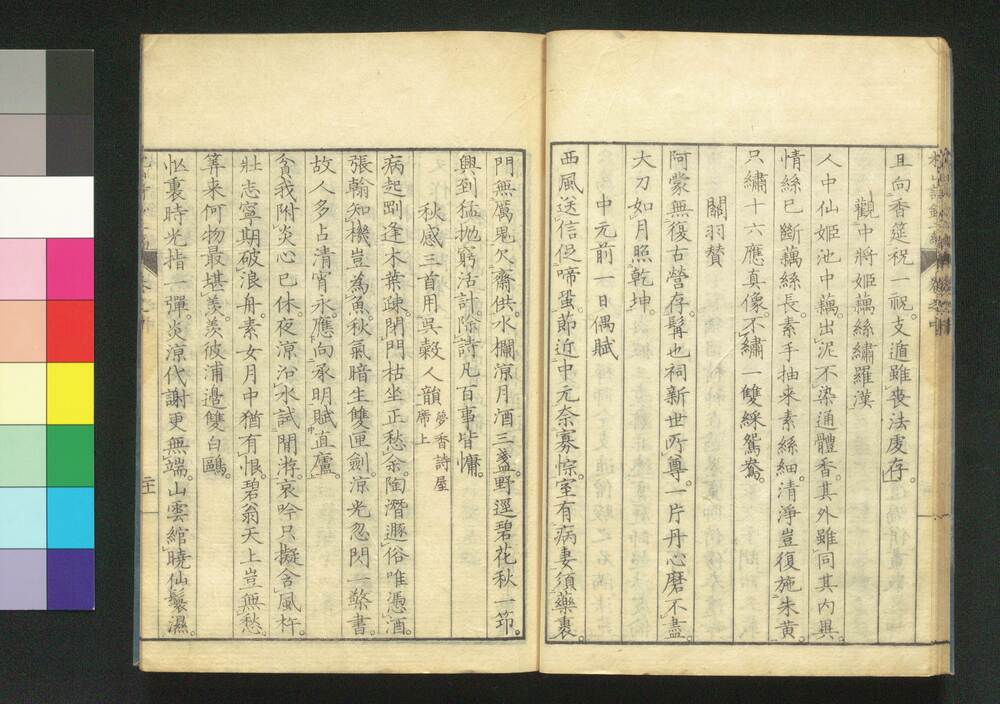 且向香筵祝一祝。支遁雖喪法虔存。
觀中將姬藕絲繡羅漢
人中仙姬池中藕。出泥不染通體香。其外雖同其内異。
情絲已斷藕絲長。素手抽来素絲細。清淨豈復施朱黄。
只繡十六應真像。不繡一雙綵鴛鴦。
關羽贊
阿蒙無復古營存。髯也祠新世所尊。一片丹心磨不盡。
大刀如月照乾坤。
中元前一日偶賦
西風送信促啼蛩。節近中元奈寡悰。室有病妻須藥裹。
門無厲鬼欠齋供。水欄涼月酒三盞。野逕碧花秋一筇。
興到猛抛窮活計。除詩凡百事皆慵。
秋感三首用吳穀人韻 夢香詩屋席上
病起剛逢木葉疎。閉門枯坐正愁余。陶潛遯俗唯憑酒。
張翰知機豈為魚。秋氣暗生雙匣劍。涼光忽閃一檠書。
故人多占清宵永。應向承明賦直廬。
貧我附炎心已休。夜涼沿水試閒游。哀吟只擬含風杵。
壯志寧期破浪舟。素女月中猶有恨。碧翁天上豈無愁。
筭来何物最堪羨。羨彼浦邉雙白鷗。
怱裏時光指一彈。炎涼代謝更無端。山雲綰曉仙鬟濕。
二十